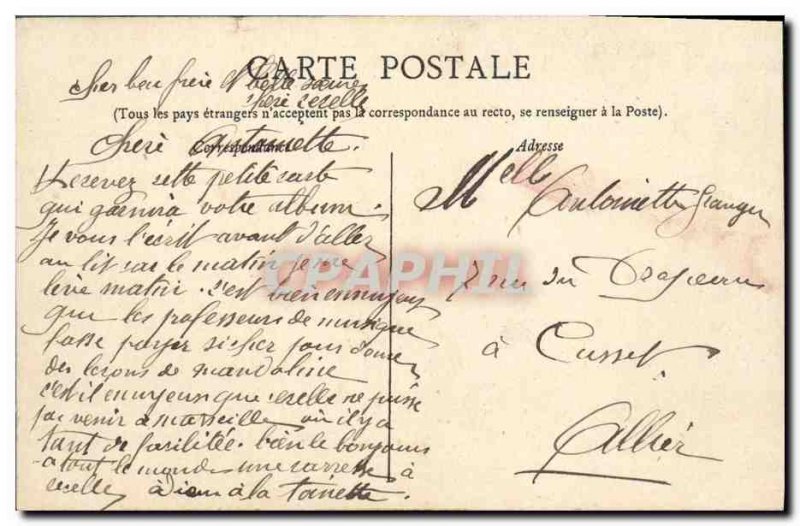 CARTE POSTALE
Cher beau frère et belle soeur
chere cecelle
(Tous les pays étrangers n'acceptent pas la correspondance au recto, se renseigner à la Poste).
Chere Antoinette.
Correspondance
Recevez cette petite carte
qui garnira votre album.
Je vous l'écrit avant d'aller
au lit car le matin je me
lève matin. s'est bien ennuyeux
que les professeurs de musique
fasse payer si cher pour donner
des leçons de mandoline
c'est il ennuyeux que cecelle ne puisse
pas venir à marseille où il y a
tant de facilitée. bien le bonjours
a tout le monde une caresse à
cecelle adieu à la toinette
Adresse
Melle Antoinette Granger
rue du Drapeau
à Cusset.
Allier
CPAPHIL